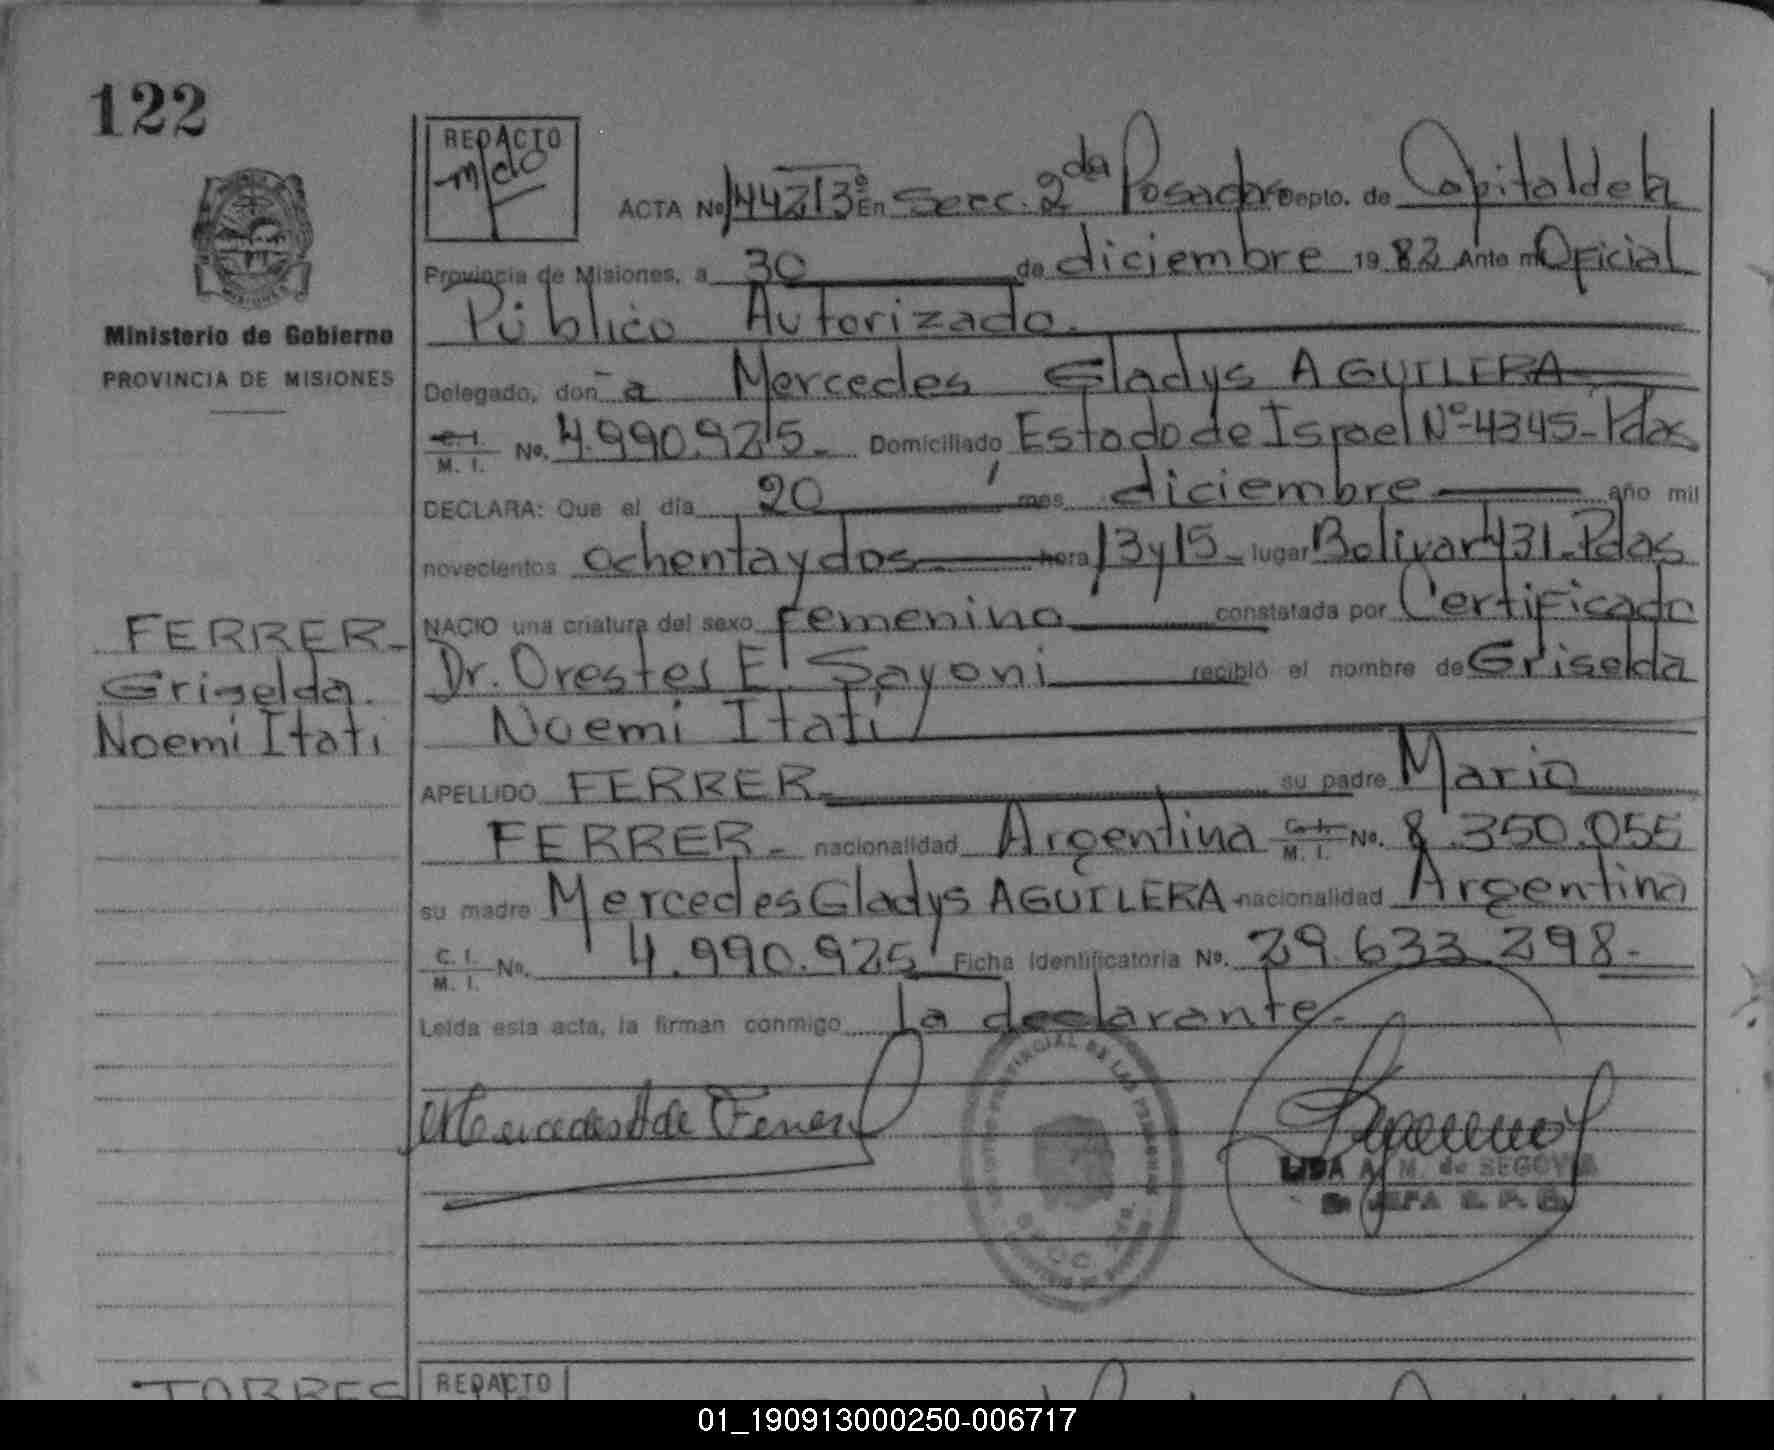 122
REDACTO
ACTA No 1442/3º En Secc. 2da Posadas Depto. de Capital de la
Provincia de Misiones, a 30 de diciembre 1982 Ante mí Oficial
Público Autorizado.
Ministerio de Gobierno
PROVINCIA DE MISIONES
Delegado, don a Mercedes Gladys AGUILERA
C. I. M. I. No. 4.990.925. Domiciliado Estado de Israel Nº 4345 - Pdas
DECLARA: Que el día 20 mes diciembre año mil
novecientos ochenta y dos hora 13 y 15 lugar Bolivar 431. Pdas
NACIO una criatura del sexo femenino constatada por Certificado
Dr. Orestes E. Sayoni recibió el nombre de Griselda
Noemi Itatí
FERRER-
Griselda.
Noemi Itati
APELLIDO FERRER su padre Mario
FERRER - nacionalidad Argentina C. I. M. I. No. 8.350.055
su madre Mercedes Gladys AGUILERA nacionalidad Argentina
C. I. M. I. No. 4.990.925 Ficha Identificatoria No. 29.633.298-
Leída esta acta, la firman conmigo la declarante.
Mercedes A de Ferrer
LIDA A. M. de SEGOVIA
JEFA R. P. P.
TORRES
REDACTO
01_190913000250-006717